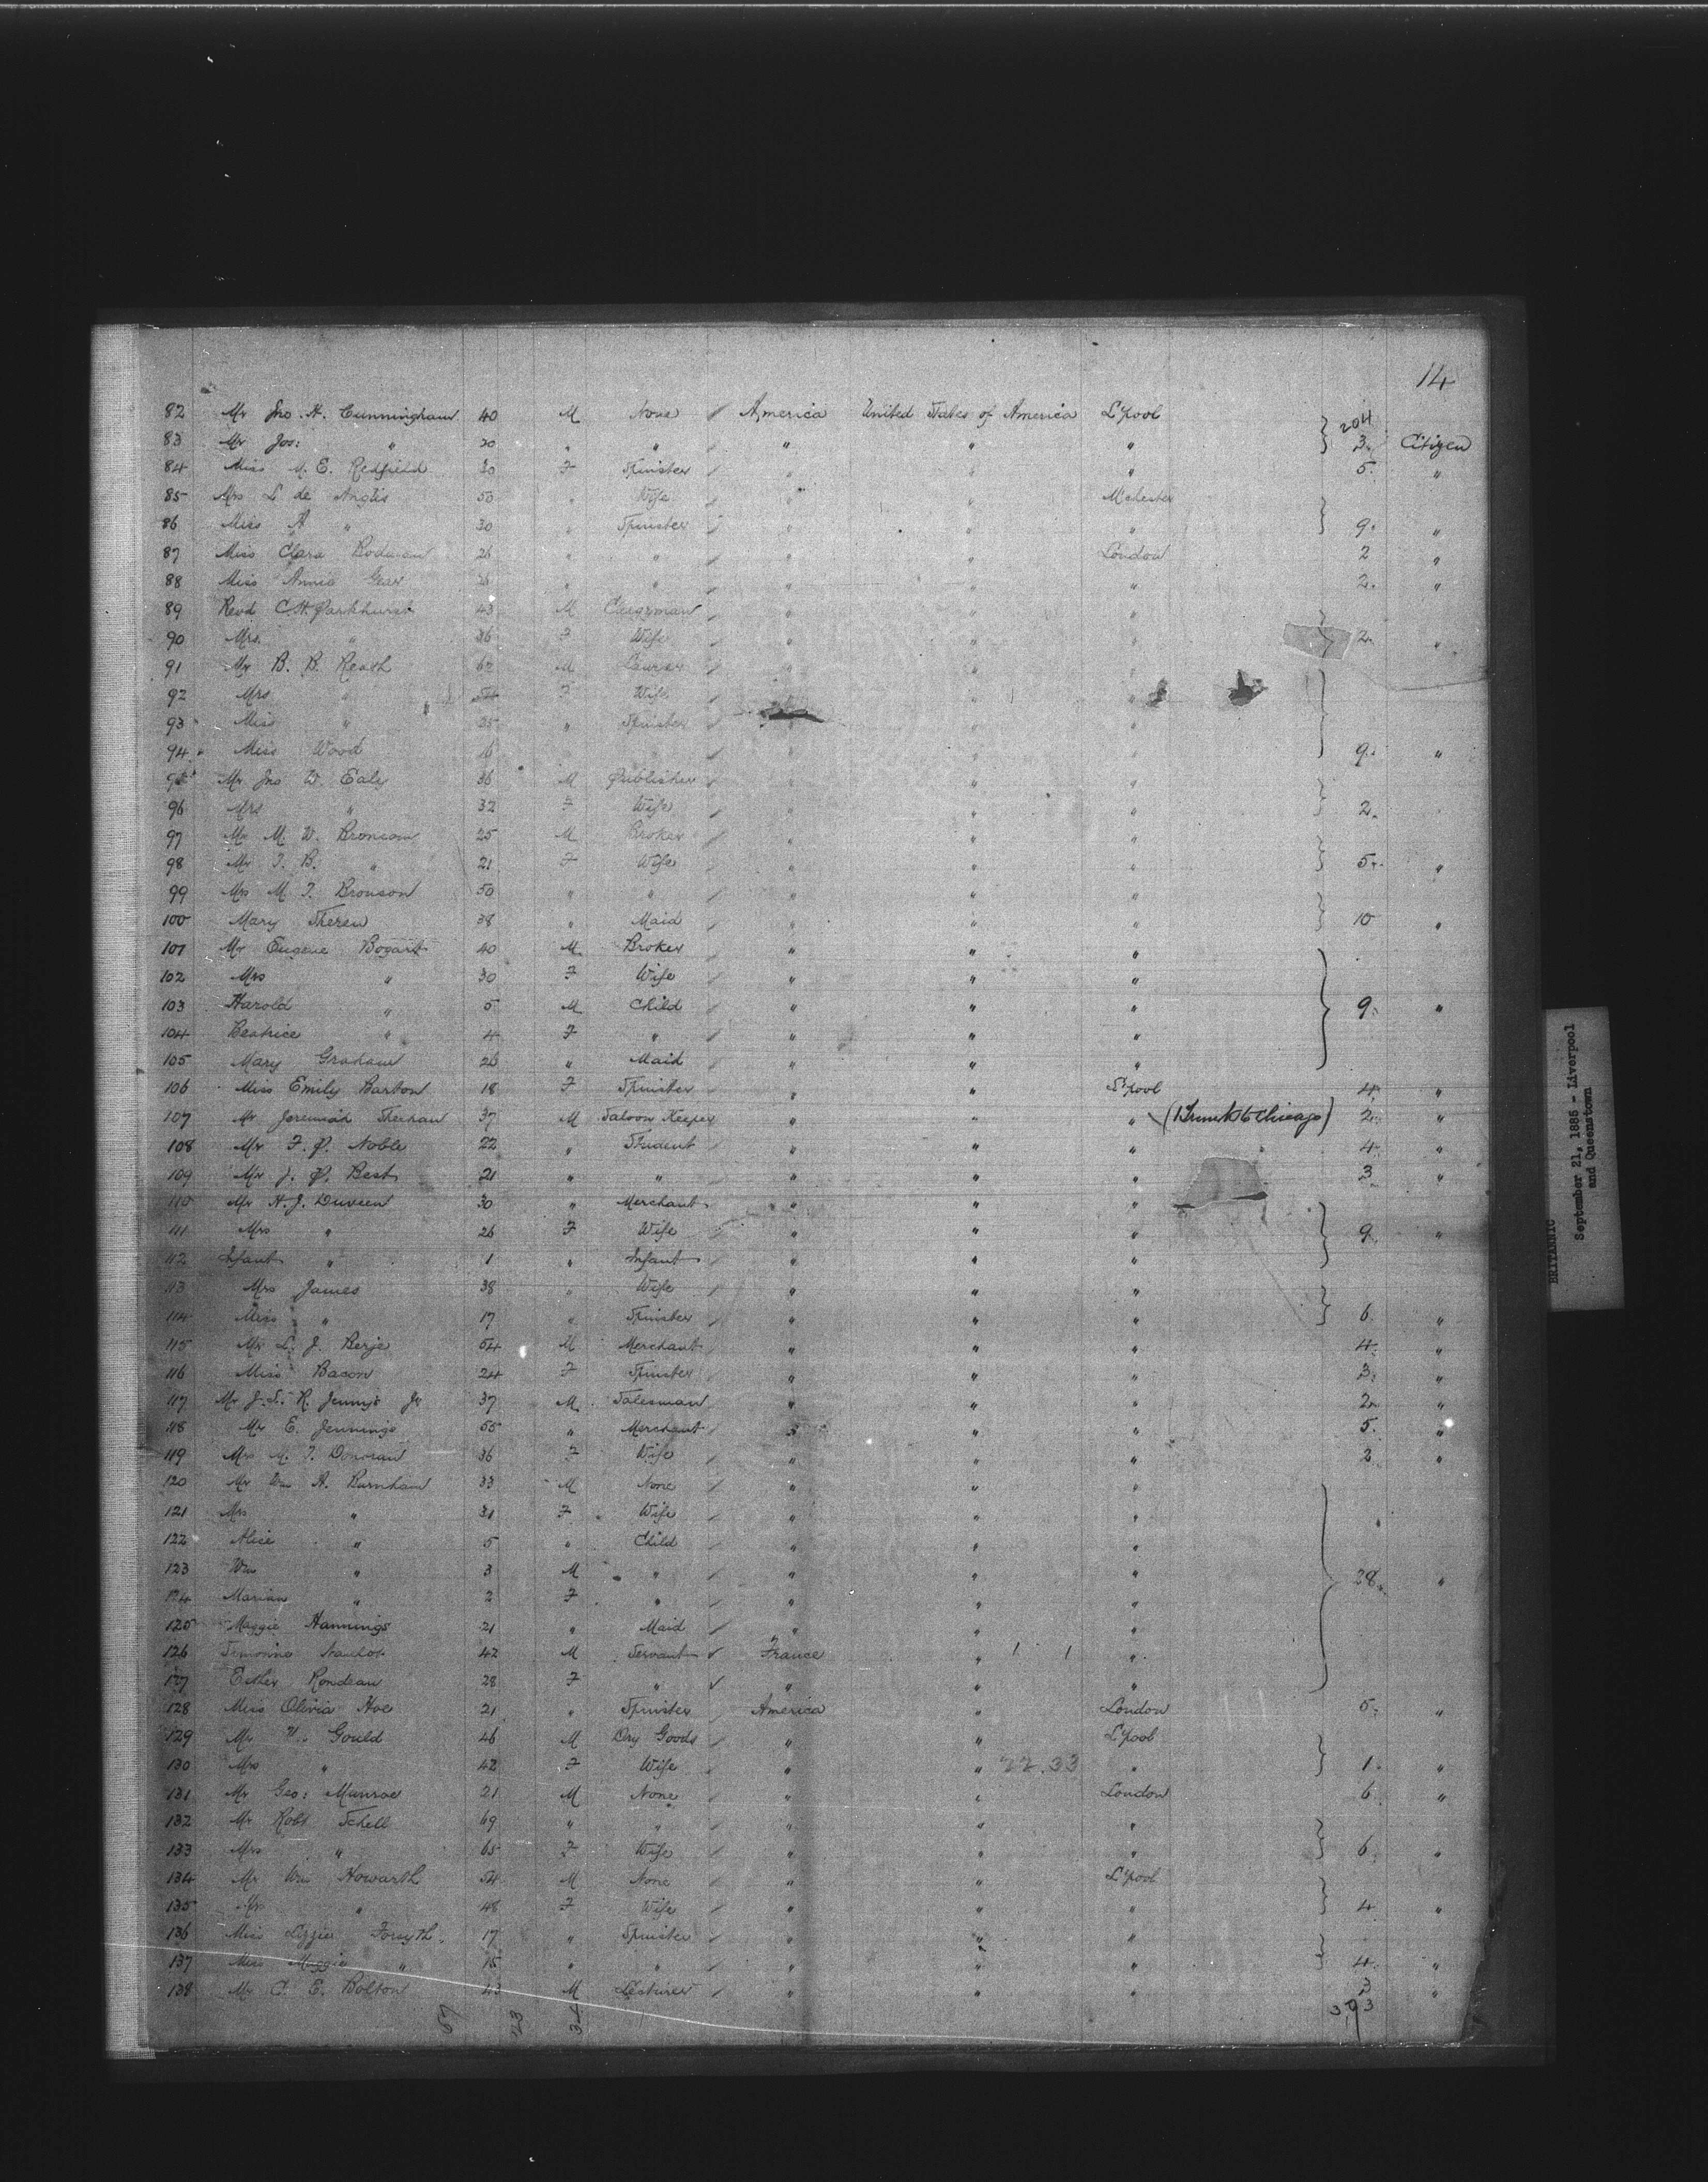 14
204
82 Mr Jno. H. Cunningham 40 M None / America United States of America L'pool
83 Mr Jos: " 20 " " / " " " } 3. Citizen
84 Miss M. E. Redfield 30 F Spinster / " " " 5. "
85 Mrs L de Anglis 50 " Wife / " " M'chester
86 Miss A " 30 " Spinster / " " " } 9. "
87 Miss Clara 26 " " / " " London 2 "
88 Miss Annie Gear " " / " " " 2. "
89 Revd C.H. Parkhurst 43 M Clergyman / " " "
90 Mrs. " 36 F Wife / " " " } 2. "
91 Mr B. B. Reath 62 M / " " "
92 Mrs " 54 F Wife / " " "
93 Miss " 25 " Spinster / " " "
94 Miss Wood 16 " " / " " " } 9. "
95 Mr Jno W. Ealy 36 M Publisher / " " "
96 Mrs " 32 F Wife / " " " } 2.
97 Mr M. W. 25 M Broker / " " "
98 Mr T. B. " 21 F Wife / " " " } 5. "
99 Mrs M. T. Bronson 50 " " / " " "
100 Mary 38 " Maid / " " " } 10 "
101 Mr Eugene Bogart 40 M Broker / " " "
102 Mrs " 30 F Wife / " " "
103 Harold " 5 M Child / " " " } 9. "
104 Beatrice " 4 F " / " " "
105 Mary Graham 26 " Maid / " " "
106 Miss Emily Barton 18 F Spinster / " " L'pool 4. "
107 Mr Jeremiah Sheehan 37 M Saloon Keeper " " " 2. "
108 Mr F. P. Noble 22 " Student / " " " 4. "
109 Mr J. P. Best 21 " " / " " " 3 "
110 Mr H. J. Duveen 30 " Merchant / " " "
111 Mrs " 26 F Wife / " " " } 9. "
112 Infant " 1 " Infant / " " "
113 Mrs James 38 " Wife / " " "
114 Miss " 17 " Spinster / " " " } 6. "
115 Mr L. J. Berje 54 M Merchant / " " " 4. "
116 Miss Bacon 24 F Spinster / " " " 3. "
117 Mr J. L. R. Jennys Jr 37 M Salesman / " " " 2. "
118 Mr E. Jennings 55 " Merchant / " " " 5. "
119 Mrs M. T. Donovan 36 F Wife / " " " 2 "
120 Mr Wm A. Burnham 33 M None / " " "
121 Mrs " 31 F Wife / " " "
122 Alice " 5 " Child / " " "
123 Wm " 3 M " / " " "
124 Marian " 2 F " / " " " } 28. "
125 Maggie Hannings 21 " Maid / " " "
126 42 M Servant ✓ France " "
127 Esther Rondeau 28 F " ✓ " " "
128 Miss Olivia Hoe 21 " Spinster / America " London 5. "
129 Mr Gould 46 M Dry Goods / " " L'pool
130 Mrs " 42 F Wife / " " 22.33 " } 1. "
131 Mr Geo: Munroe 21 M None / " " London 6 "
132 Mr Robt Schell 69 " " / " " "
133 Mrs " 65 F Wife / " " " } 6. "
134 Mr Wm Howarth 54 M None / " " L'pool
135 Mrs " 48 F Wife / " " " } 4 "
136 Miss Lizzie Forsyth 17 " Spinster / " " "
137 Miss Maggie " 15 " " / " " " } 4. "
138 Mr C. E. Bolton 43 M Lecturer / " " " 3 "
57 23 34 393
BRITANNIC
September 21, 1885 - Liverpool
and Queenstown